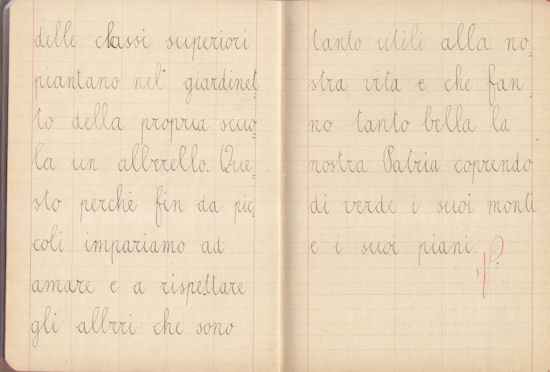 delle classi superiori
piantano nel giardinet=
to della propria scuo=
la un alberello. Que=
sto perchè fin da pic=
coli impariamo ad
amare e a rispettare
gli albri che sono
tanto utili alla no=
stra vita e che fan=
no tanto bella la
nostra Patria coprendo
di verde i suoi monti
e i suoi piani.